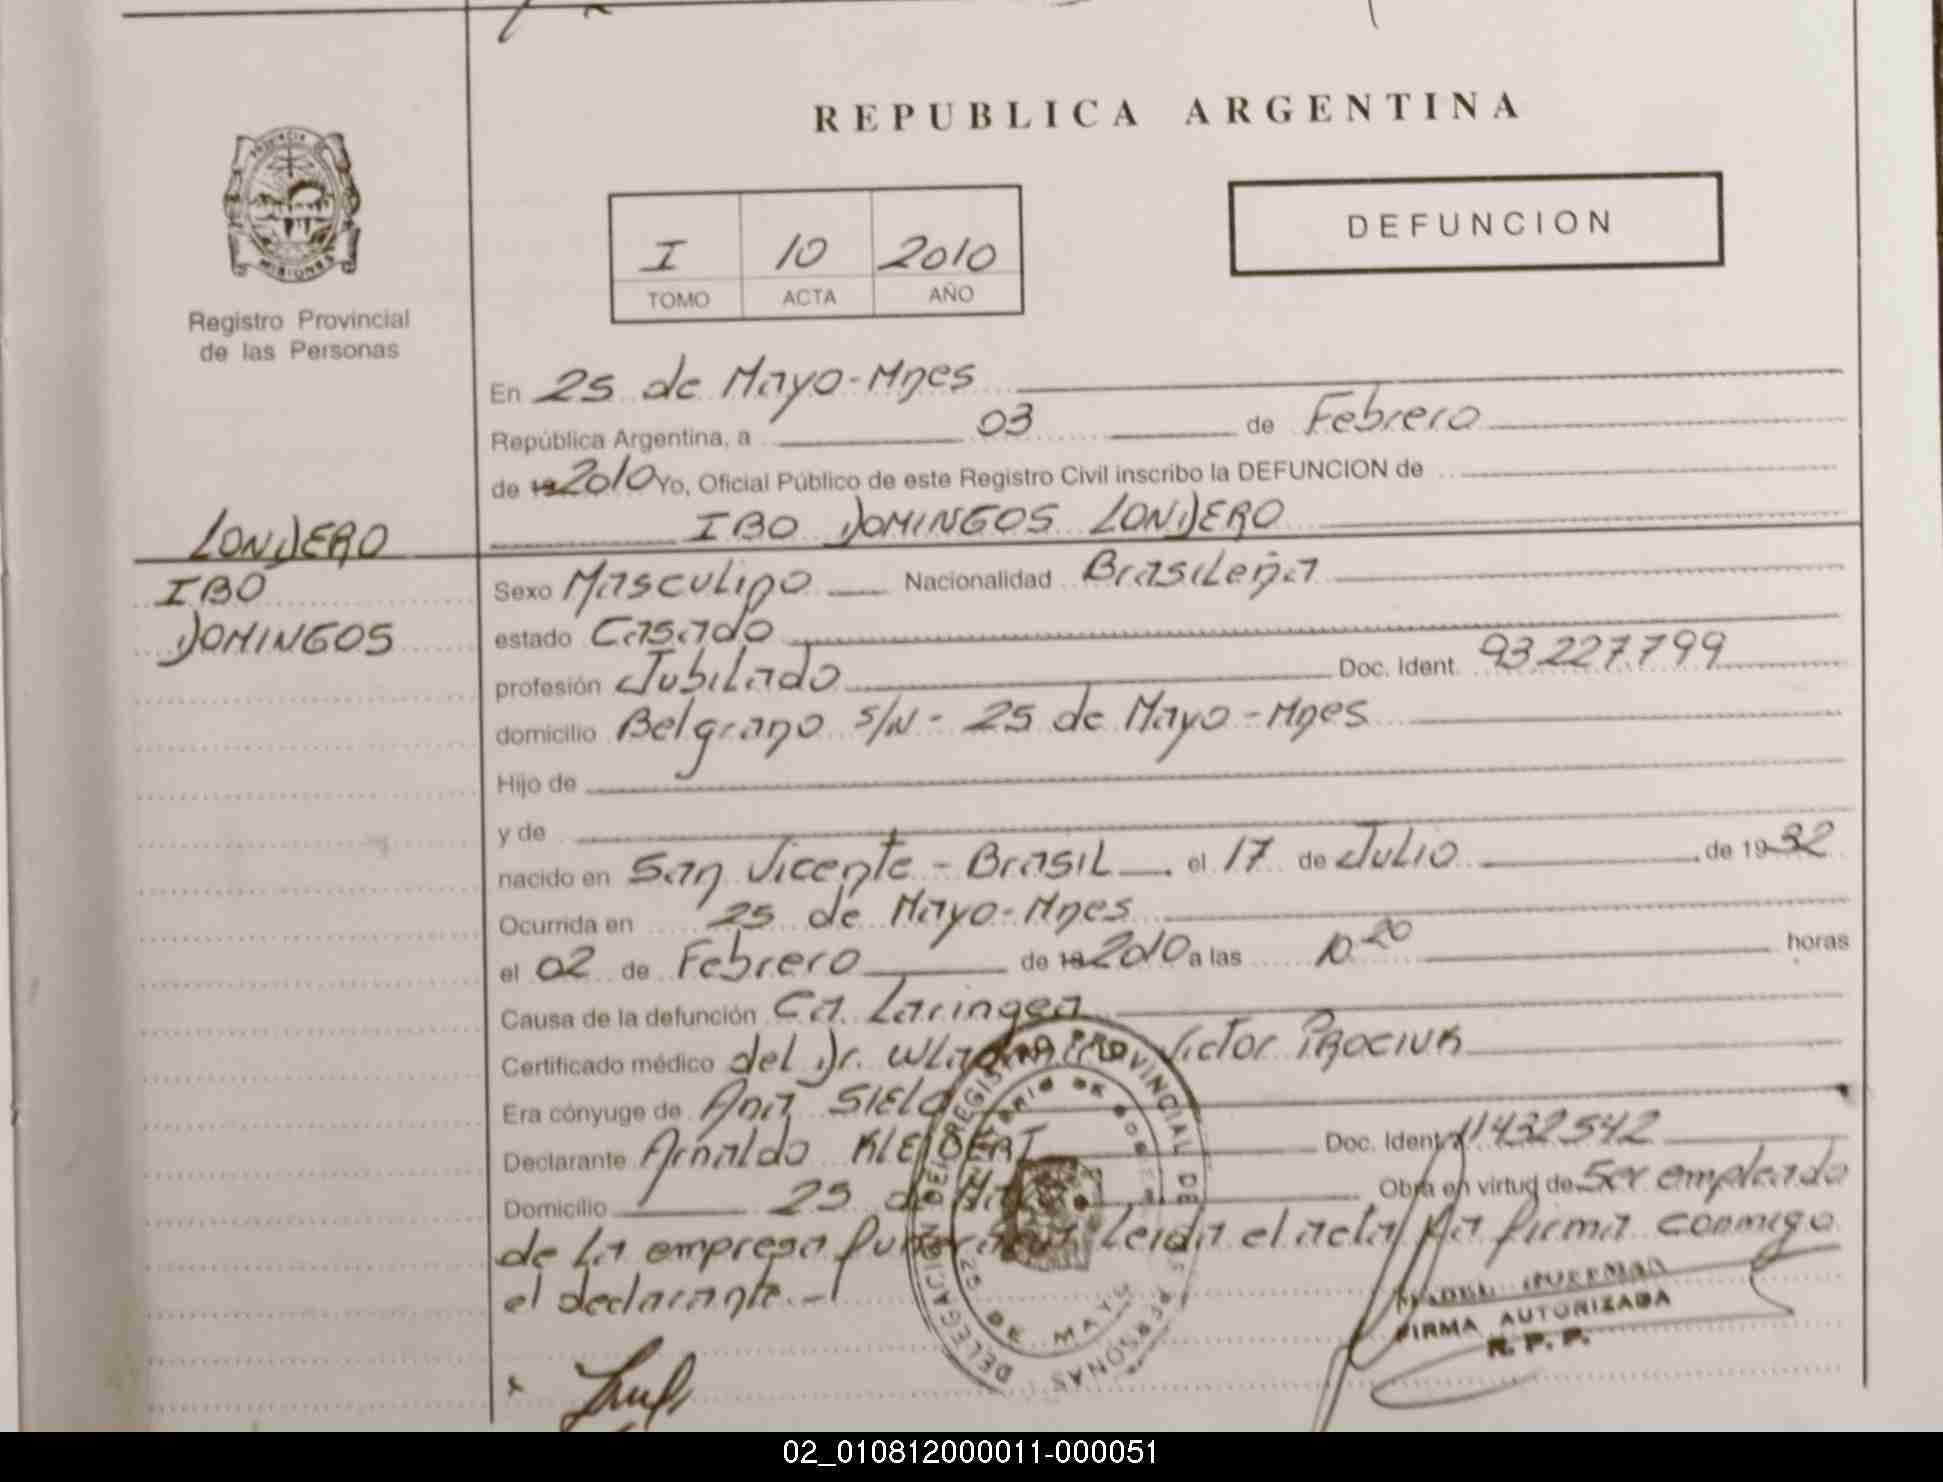 REPUBLICA ARGENTINA
PROVINCIA DE
MISIONES
Registro Provincial
de las Personas
I 10 2010
TOMO ACTA AÑO
DEFUNCION
En 25 de Mayo-Mnes
República Argentina, a 03 de Febrero
de 19 2010 Yo, Oficial Público de este Registro Civil inscribo la DEFUNCION de
IBO DOMINGOS LONDERO
LONDERO
IBO
DOMINGOS
Sexo Masculino Nacionalidad Brasileña
estado Casado
profesión Jubilado Doc. Ident. 93.227.799
domicilio Belgrano s/N - 25 de Mayo-Mnes
Hijo de
y de
nacido en San Vicente - Brasil el 17 de Julio de 1932
Ocurrida en 25 de Mayo-Mnes
el 02 de Febrero de 19 2010 a las 10.20 horas
Causa de la defunción Ca. Laringea
Certificado médico del Dr. Victor PROCIUK
Era cónyuge de Ana SIELO
Declarante Arnaldo KLEIBERT Doc. Ident. 11432542
Domicilio 25 de Mayo Obra en virtud de Ser empleado
de la empresa funeraria Leida el acta la firma conmigo
el declarante.-
DELEGACION DEL REGISTRO PROVINCIAL DE LAS PERSONAS
25 DE MAYO
FIRMA AUTORIZADA
R. P. P.
02_010812000011-000051